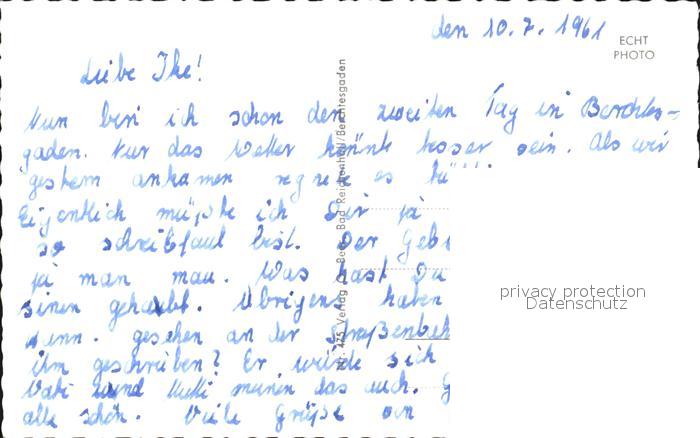 den 10.7.1961
ECHT
PHOTO
Liebe Ike!
Nun bin ich schon den zweiten Tag in Berchtes-
gaden. Nur das Wetter könnte besser sein. Als wir
gestern ankamen regnete es
Eigentlich müßte ich Dir ja
so schreibfaul bist. Der
ja man mau. Was hast Du
gehabt. Übrigens haben
gesehen an der
ihm geschrieben? Er würde sich
Vati und Mutti meinen das auch.
alle schön. Viele Grüße an
Nr. 475 Verlag Bad Reichenhall/Berchtesgaden
privacy protection
Datenschutz